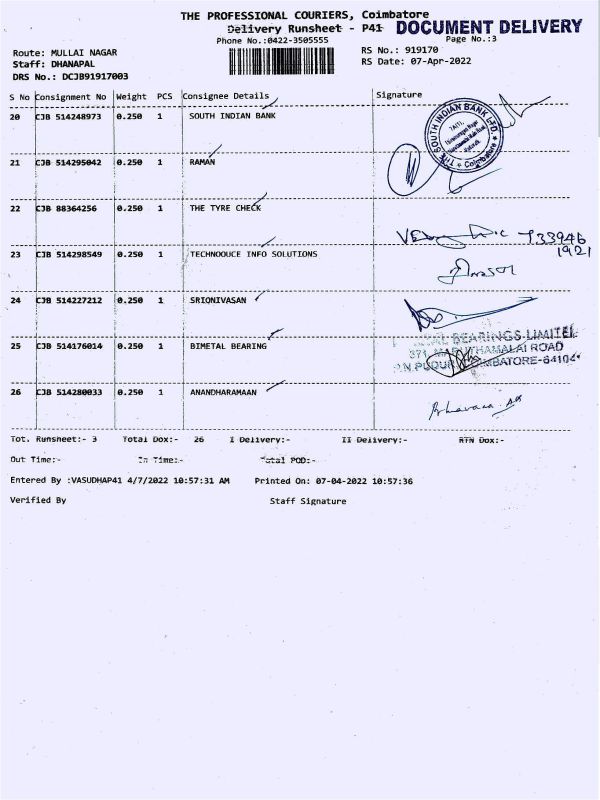 THE PROFESSIONAL COURIERS, Coimbatore
Delivery Runsheet - P41 DOCUMENT DELIVERY
Phone No.:0422-3505555 Page No.:3
Route: MULLAI NAGAR RS No.: 919170
Staff: DHANAPAL RS Date: 07-Apr-2022
DRS No.: DCJB91917003
S No Consignment No Weight PCS Consignee Details Signature
20 CJB 514248973 0.250 1 SOUTH INDIAN BANK
THE SOUTH INDIAN BANK LTD. Coimbatore
21 CJB 514295042 0.250 1 RAMAN
22 CJB 88364256 0.250 1 THE TYRE CHECK
733946
1921
23 CJB 514298549 0.250 1 TECHNODUCE INFO SOLUTIONS
24 CJB 514227212 0.250 1 SRIONIVASAN
25 CJB 514176014 0.250 1 BIMETAL BEARING
BEARINGS LIMITED
371, MARUTHAMALAI ROAD
P.N.PUDUR COIMBATORE-64104
26 CJB 514280033 0.250 1 ANANDHARAMAAN
Bhavana
Tot. Runsheet:- 3 Total Dox:- 26 I Delivery:- II Delivery:- RTN Dox:-
Out Time:- In Time:- Total POD:-
Entered By :VASUDHAP41 4/7/2022 10:57:31 AM Printed On: 07-04-2022 10:57:36
Verified By Staff Signature